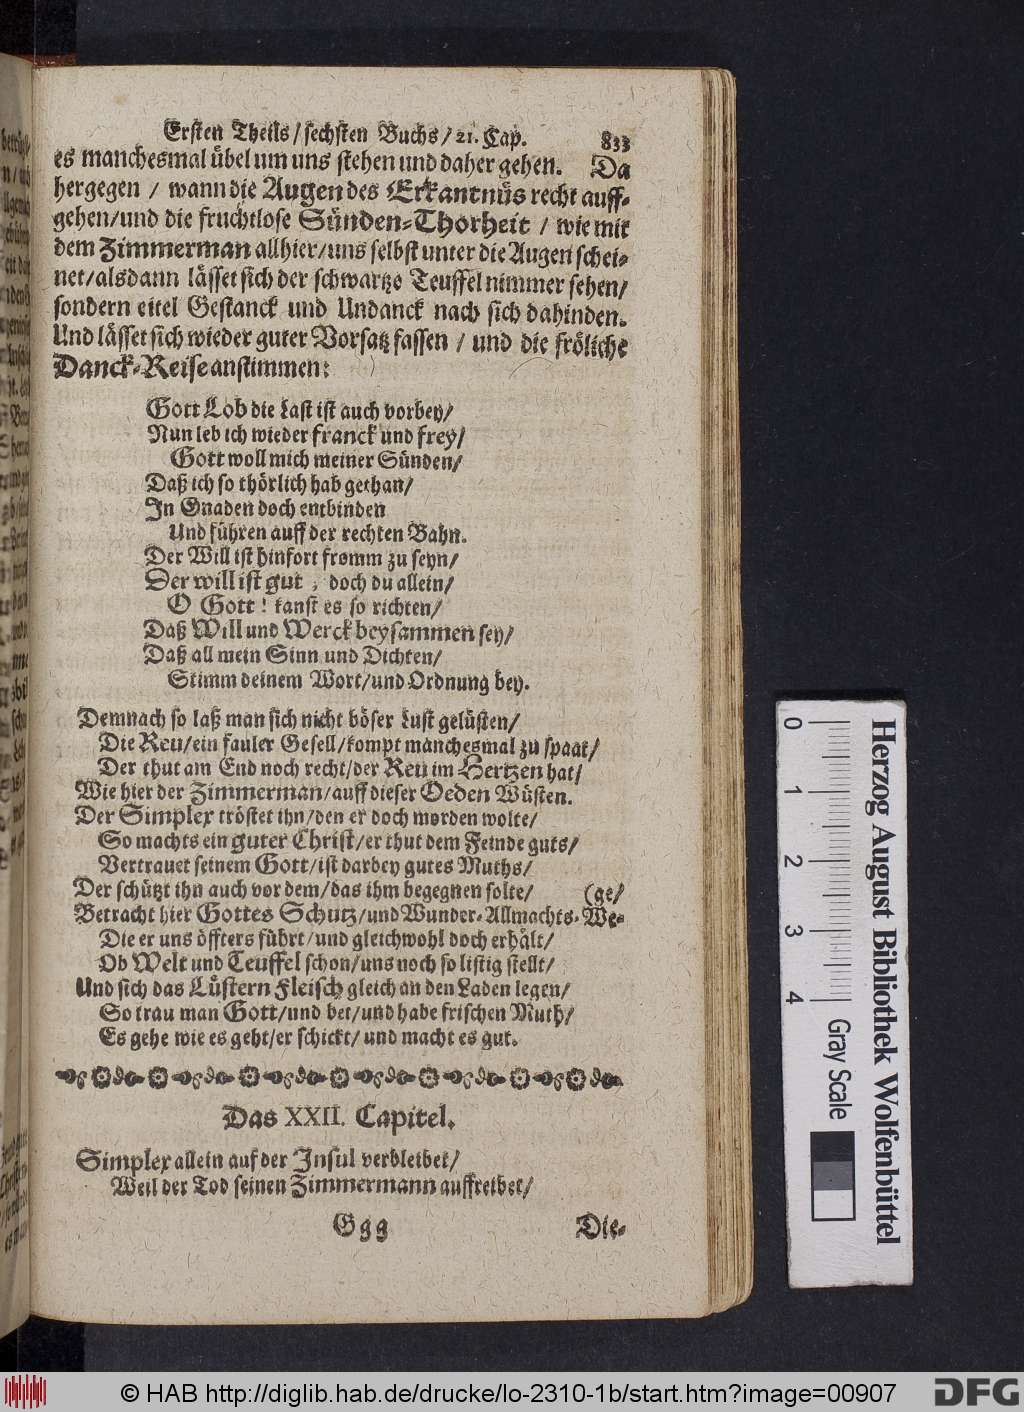 Ersten Theils / sechsten Buchs / 21. Cap. 833
es manchesmal übel um uns stehen und daher gehen. Da
hergegen / wann die Augen des Erkantnüs recht auff-
gehen/und die fruchtlose Sünden-Thorheit / wie mit
dem Zimmerman allhier/uns selbst unter die Augen schei-
net/alsdann lässet sich der schwartze Teuffel nimmer sehen/
sondern eitel Gestanck und Undanck nach sich dahinden.
Und lässet sich wieder guter Vorsatz fassen / und die fröliche
Danck-Reise anstimmen:
Gott Lob die Last ist auch vorbey/
Nun leb ich wieder franck und frey/
Gott woll mich meiner Sünden/
Daß ich so thörlich hab gethan/
In Gnaden doch entbinden
Und führen auff der rechten Bahn.
Der Will ist hinfort fromm zu seyn/
Der will ist gut , doch du allein/
O Gott ! kanst es so richten/
Daß Will und Werck beysammen sey/
Daß all mein Sinn und Dichten/
Stimm deinem Wort/und Ordnung bey.
Demnach so laß man sich nicht böser Lust gelüsten/
Die Reu/ein fauler Gesell/kompt manchesmal zu spaat/
Der thut am End noch recht/der Reu im Hertzen hat/
Wie hier der Zimmerman/auff dieser Oeden Wüsten.
Der Simplex tröstet ihn/den er doch morden wolte/
So machts ein guter Christ/er thut dem Feinde guts/
Vertrauet seinem Gott/ist darbey gutes Muths/
Der schützt ihn auch vor dem/das ihm begegnen solte/ (ge/
Betracht hier Gottes Schutz/und Wunder-Allmachts-We-
Die er uns öffters führt/und gleichwohl doch erhält/
Ob Welt und Teuffel schon/uns noch so listig stellt/
Und sich das Lüstern Fleisch gleich an den Laden legen/
So trau man Gott/und bet/und habe frischen Muth/
Es gehe wie es geht/er schickt/ und macht es gut.
Das XXII. Capitel.
Simplex allein auf der Insul verbleibet/
Weil der Tod seinen Zimmermann auffreibet/
Ggg Die-
0 1 2 3 4
Gray Scale
Herzog August Bibliothek Wolfenbüttel
© HAB http://diglib.hab.de/drucke/lo-2310-1b/start.htm?image=00907
DFG